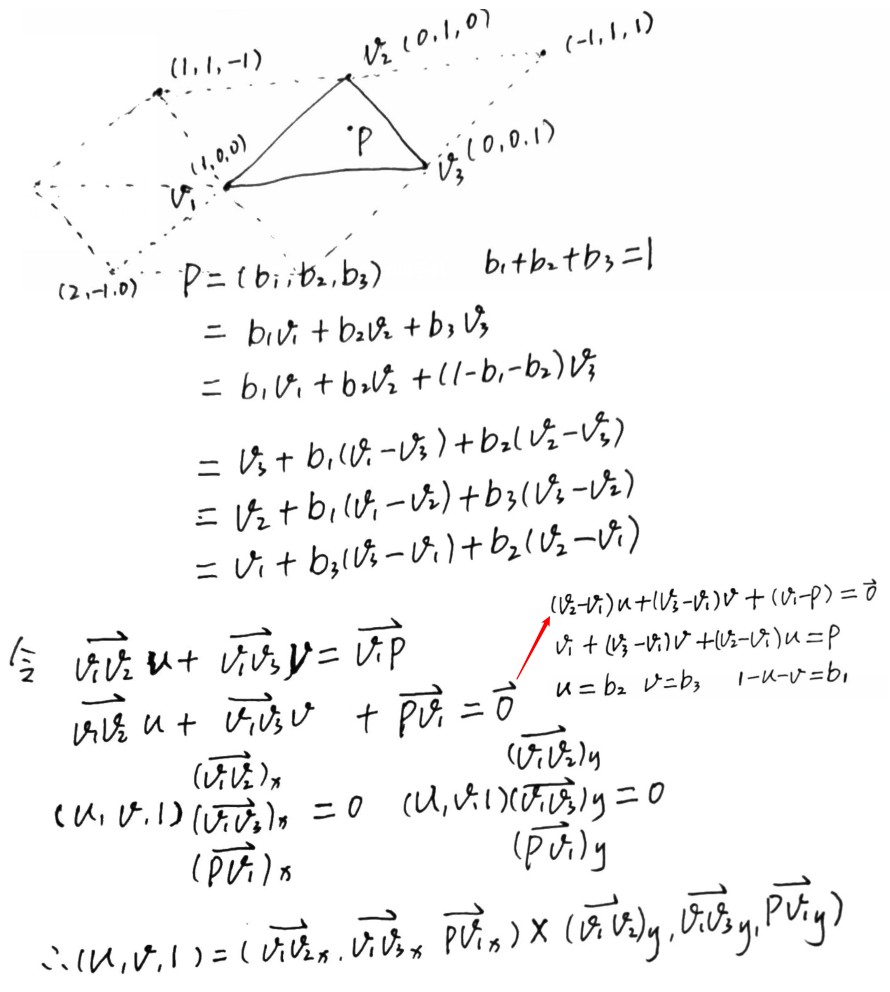 (1,1,-1)
v₂ (0,1,0)
(-1,1,1)
·P
(1,0,0)
v₁
v₃ (0,0.1)
(2,-1.0)
P=(b₁,b₂,b₃)
b₁+b₂+b₃=1
= b₁v₁+b₂v₂+b₃v₃
= b₁v₁+b₂v₂+(1-b₁-b₂)v₃
= v₃+b₁(v₁-v₃)+b₂(v₂-v₃)
= v₂+b₁(v₁-v₂)+b₃(v₃-v₂)
= v₁+b₃(v₃-v₁)+b₂(v₂-v₁)
(v₂-v₁)u+(v₃-v₁)v+(v₁-P)=0⃗
v₁+(v₃-v₁)v+(v₂-v₁)u=P
u=b₂ v=b₃ 1-u-v=b₁
令 $\overrightarrow{v_1v_2}$ u+ $\overrightarrow{v_1v_3}$ v= $\overrightarrow{v_1P}$
$\overrightarrow{v_1v_2}$ u+ $\overrightarrow{v_1v_3}$ v + $\overrightarrow{Pv_1}$ =0⃗
($\overrightarrow{v_1v_2}$)x
(u,v,1) ($\overrightarrow{v_1v_3}$)x =0
($\overrightarrow{Pv_1}$)x
($\overrightarrow{v_1v_2}$)y
(u,v.1)($\overrightarrow{v_1v_3}$)y=0
($\overrightarrow{Pv_1}$)y
∴(u,v,1)=($\overrightarrow{v_1v_2}$x.$\overrightarrow{v_1v_3}$x $\overrightarrow{Pv_1}$x)×($\overrightarrow{v_1v_2}$)y,$\overrightarrow{v_1v_3}$y,$\overrightarrow{Pv_1}$y)